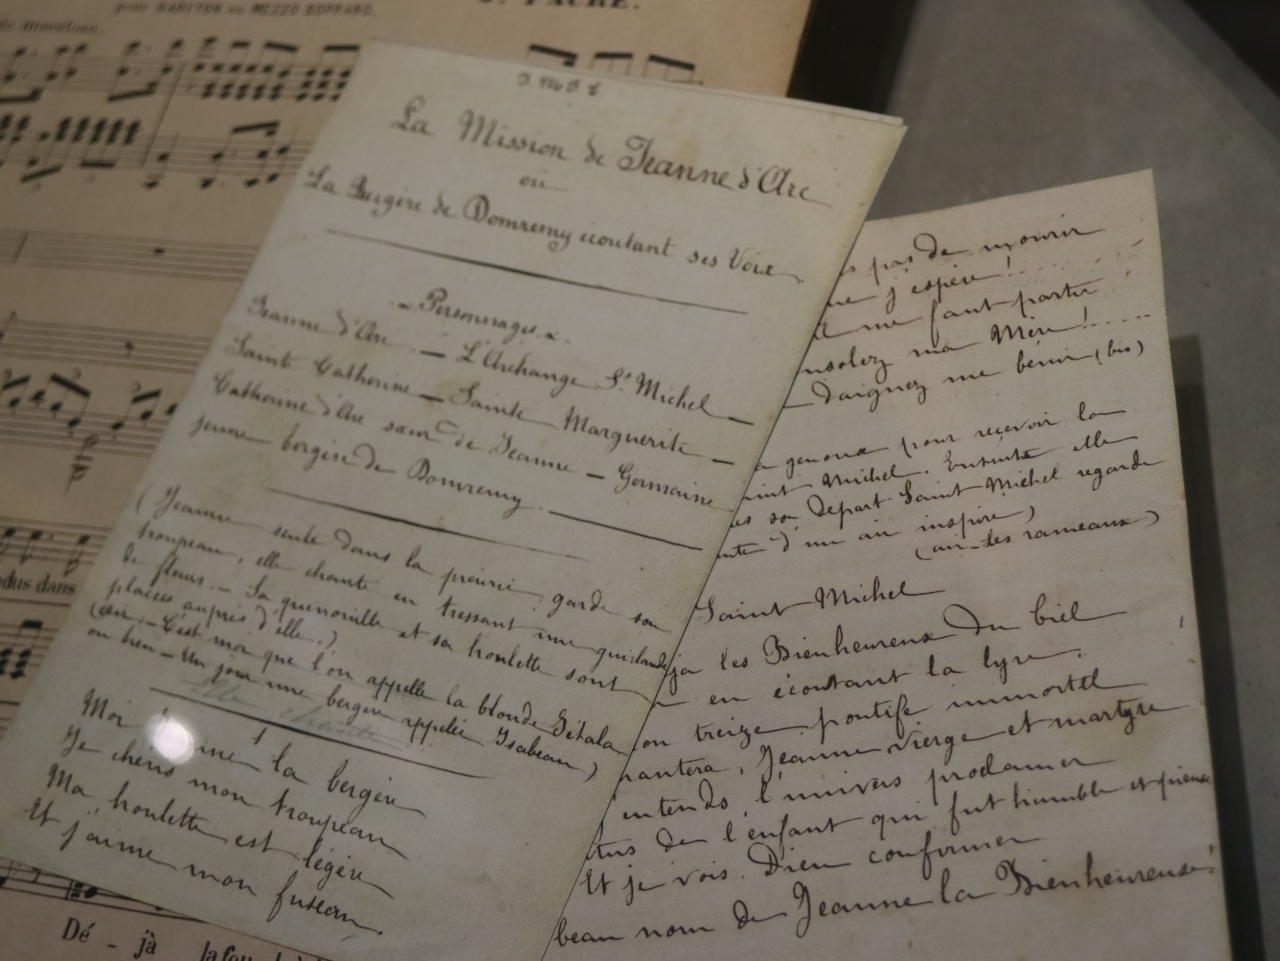 pour BARYTON ou MEZZO SOPRANO.
J. FAURE.
La Mission de Jeanne d'Arc
ou
La Bergère de Domremy écoutant ses Voix
Personnages
Jeanne d'Arc — L'Archange St Michel —
Sainte Catherine — Sainte Marguerite —
Catherine d'Arc sœur de Jeanne — Germaine
jeune bergère de Domremy. —
(Jeanne seule dans la prairie, garde son
troupeau, elle chante en tressant une guirlande
de fleurs. — Sa quenouille et sa houlette sont
placées auprès d'elle.)
(air — C'est moi que l'on appelle la blonde
ou bien — Un jour une bergère appelée Isabeau)
1
Moi la bergère
Je chéris mon troupeau
Ma houlette est légère
Et j'aime mon fuseau.
pas de mourir
j'espère!
me faut partir
ma Mère!
daignez me bénir (bis)
genoux pour recevoir la
Michel. Ensuite elle
son départ Saint Michel regarde
d'un air inspiré)
(air — Les rameaux)
Saint Michel
les Bienheureux du Ciel
en écoutant la lyre
treize pontife immortel
Jeanne vierge et martyre
entends l'univers proclamer
de l'enfant qui fut humble et pieuse
Et je vois Dieu confirmer
beau nom de Jeanne la Bienheureuse!
dus dans
Dé - jà la